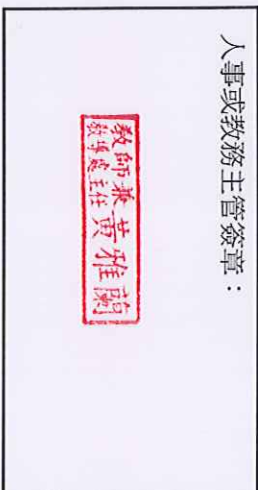 人事或教務主管簽章：
教師兼
教導處主任 黃雅蘭